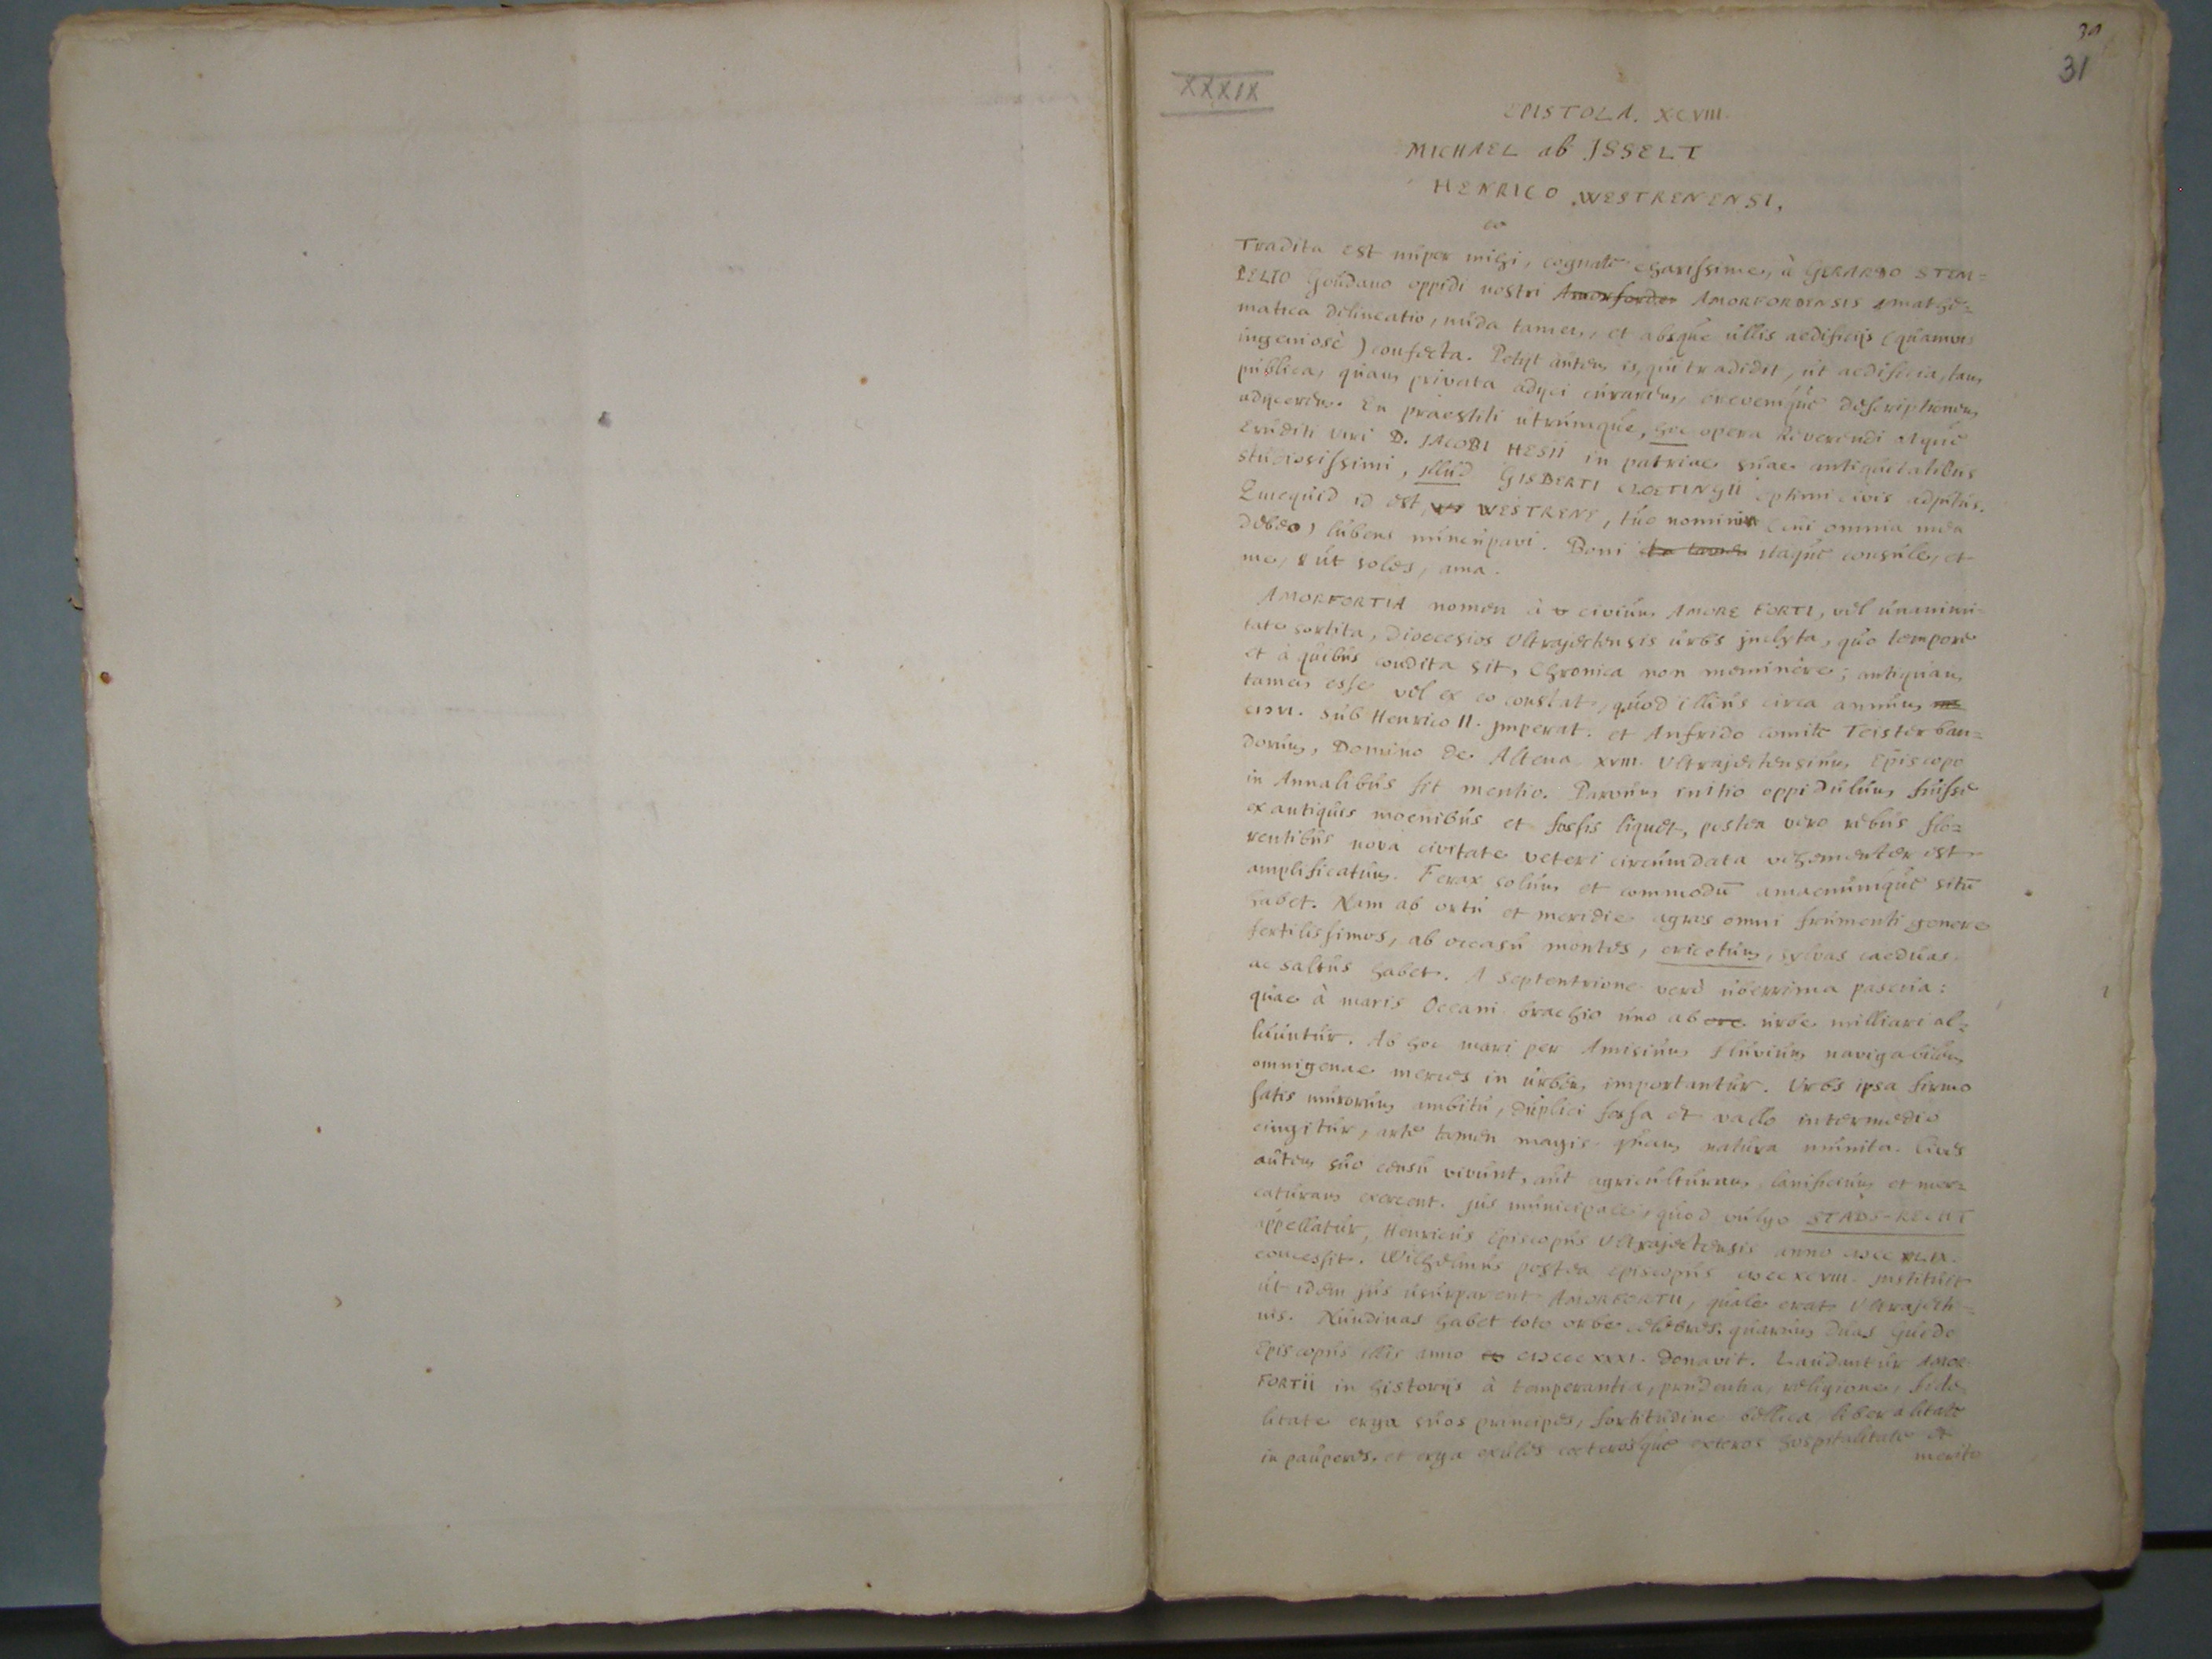 30
31
XXXIX
EPISTOLA. XCVIII.
MICHAEL ab ISSELT
HENRICO WESTRENENSI,
Tradita est nuper mihi, cognate charissime, à GERARDO STEM=
PELIO Goudano oppidi nostri Amorforden AMORFORDENSIS mathe=
matica delineatio, nuda tamen, et absque ullis aedificijs (quamvis
ingeniosè) confecta. Petijt autem is, qui tradidit, ut aedificia, tam
publica, quam privata adijci curarem, brevemque descriptionem
adijcerem. En praestiti utrumque, hoc opera Reverendi atque
Eruditi viri D. JACOBI HESII in patriae suae antiquitatibus
studiosissimi, illud GISBERTI optimi civis adjutus.
Quicquid id est, WESTRENE, tuo nomini (cui omnia mea
debeo) lubens nuncupavi. Boni itaque consule, et
me, ut soles, ama.
AMORFORTIA nomen à civium AMORE FORTI, vel unanimi
tate sortita, Dioecesios Ultrajectensis urbs inclyta, quo tempore
et à quibus condita sit, Chronica non meminere; antiquam
tamen esse vel ex eo constat, quod illius circa annum
cIɔvi. sub Henrico II. Imperat. et Anfrido Comite Teisterban=
dorum, Domino de Altena XVIII. Ultrajectensium Episcopo
in Annalibus fit mentio. Parvum initio oppidulum fuisse
ex antiquis moenibus et fossis liquet, postea vero rebus flo=
rentibus nova civitate veteri circumdata vehementer est
amplificatum. Ferax solum et commodū amaenumque sitū
habet. Nam ab ortu et meridie agros omni frumenti genere
fertilissimos, ab occasu montes, ericetum, sylvas caeduas
ac saltus habet. A septentrione verò uberrima pascua:
quae à maris Oceani brachio uno ab ore urbe milliari al=
luuntur. Ab hoc mari per Amisium fluvium navigabilem
omnigenae merces in urbem importantur. Urbs ipsa firmo
satis murorum ambitu, duplici fossa et vallo intermedio
cingitur, arte tamen magis quam natura munita. Cives
autem suo censu vivunt, aut agriculturam, lanificium et mer=
caturam exercent. Jus municipale, quod vulgo STADS-RECHT
appellatur, Henricus Episcopus Ultrajectensis anno
concessit. Wilhelmus postea Episcopus cIɔccxcviii. instituit
ut idem jus usurparent AMORFORTII, quale erat Ultrajecti=
nis. Nundinas habet toto orbe celebres, quarum duas Guido
Episcopus illis anno cIɔcccxxxi. donavit. Laudantur AMOR
FORTII in historijs à temperantia, prudentia, religione, fide
litate erga suos principes, fortitudine bellica, liberalitate
in pauperes, et erga exules coeterosque exteros hospitalitate et
merito